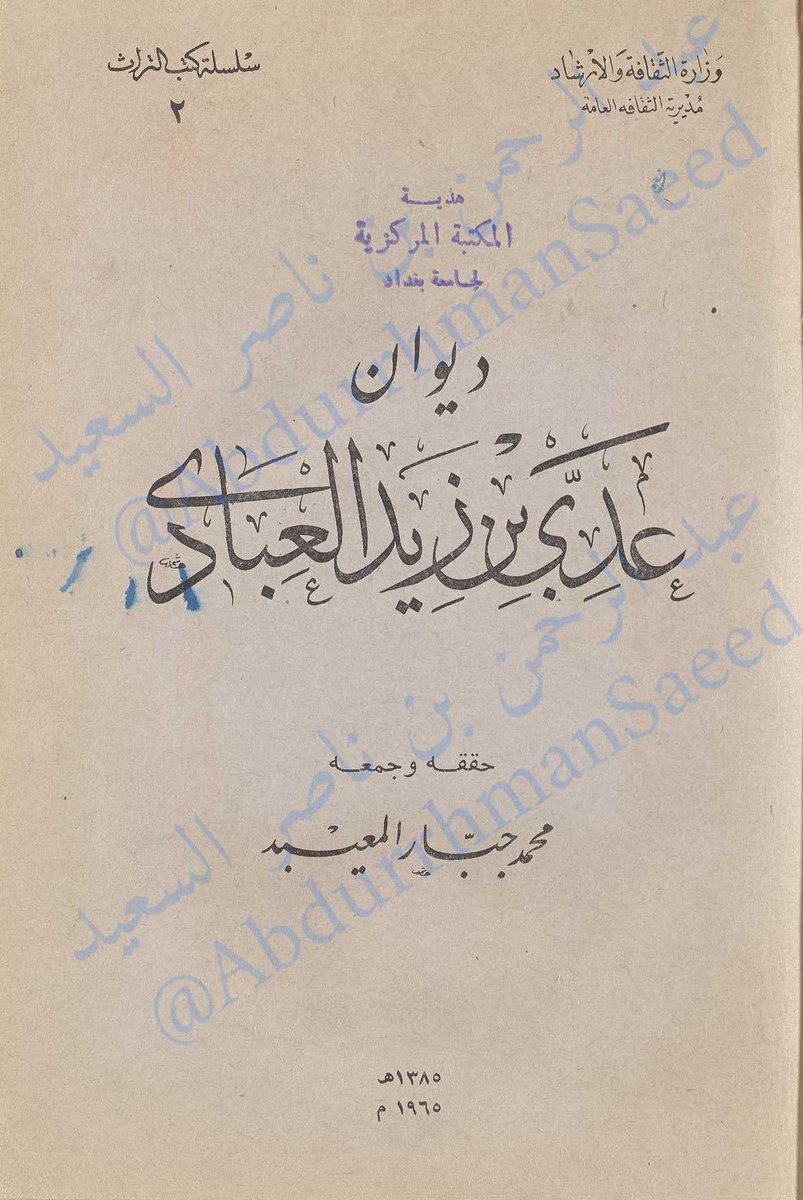 وزارة الثقافة والارشاد
مديرية الثقافه العامة
سلسلة كتب التراث
٢
هديـــة
المكتبة المركزية
لجامعة بغداد
ديوان
عَدِيِّ بْنِ زَيْدِ العِبَادِيّ
حققـــه وجمعـــه
محمد جبّار المعيبد
١٣٨٥هـ
١٩٦٥ م
عبد الرحمن بن ناصر السعيد
@AbdurrhmanSaeed
عبد الرحمن بن ناصر السعيد
@AbdurrhmanSaeed